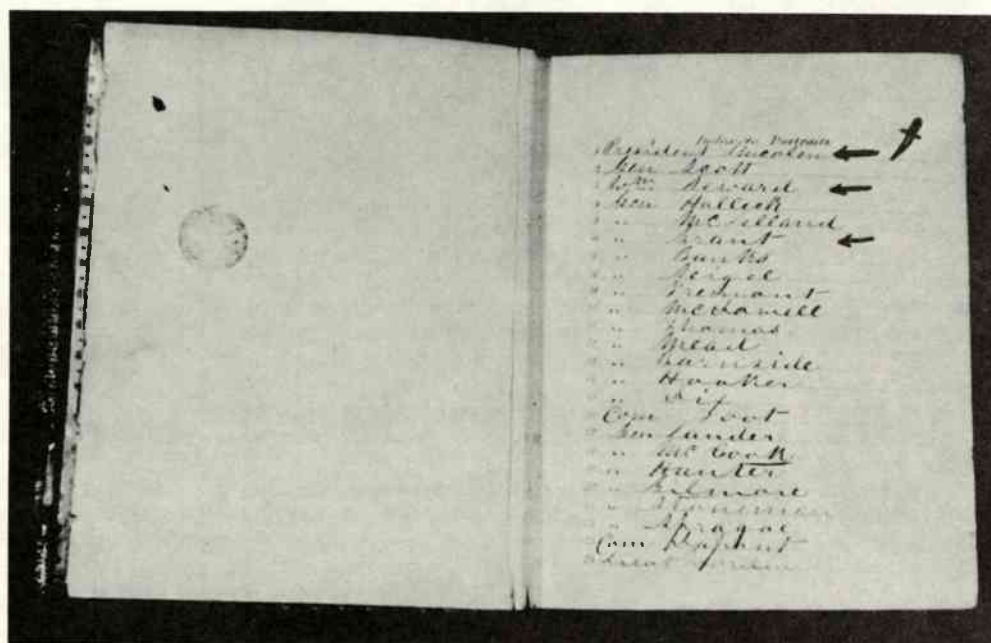 Index to Portraits
President Lincoln
Gen Scott
Wm Seward
Gen Halleck
" McClelland
" Grant
" Banks
" Seigel
" Fremont
" McDowell
" Thomas
" Mead
" Burnside
" Hooker
" Dix
Com Foot
Gen Lander
" McCook
" Hunter
" Gilmore
" Stoneman
" Sprague
Com Dupont
Lieut